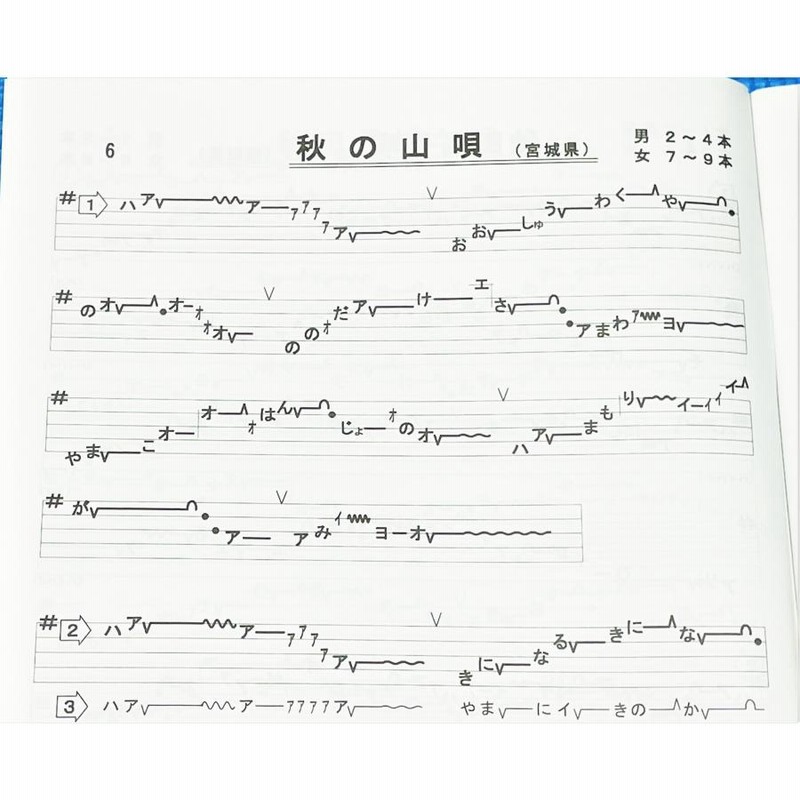 6 秋の山唄 (宮城県) 男 2～4本
女 7～9本
# 1 ハア ア アアアアア おおしゅうわくや
# のオオォォオ ののォだアけエさアまわァヨ
# やまこオオォはんじょォのオ ハアまもりイーィィイ
# がアー アみィヨーオ
# 2 ハア ア アアアアア きになるきにな
3 ハア アーアアアアア やまにイきのか